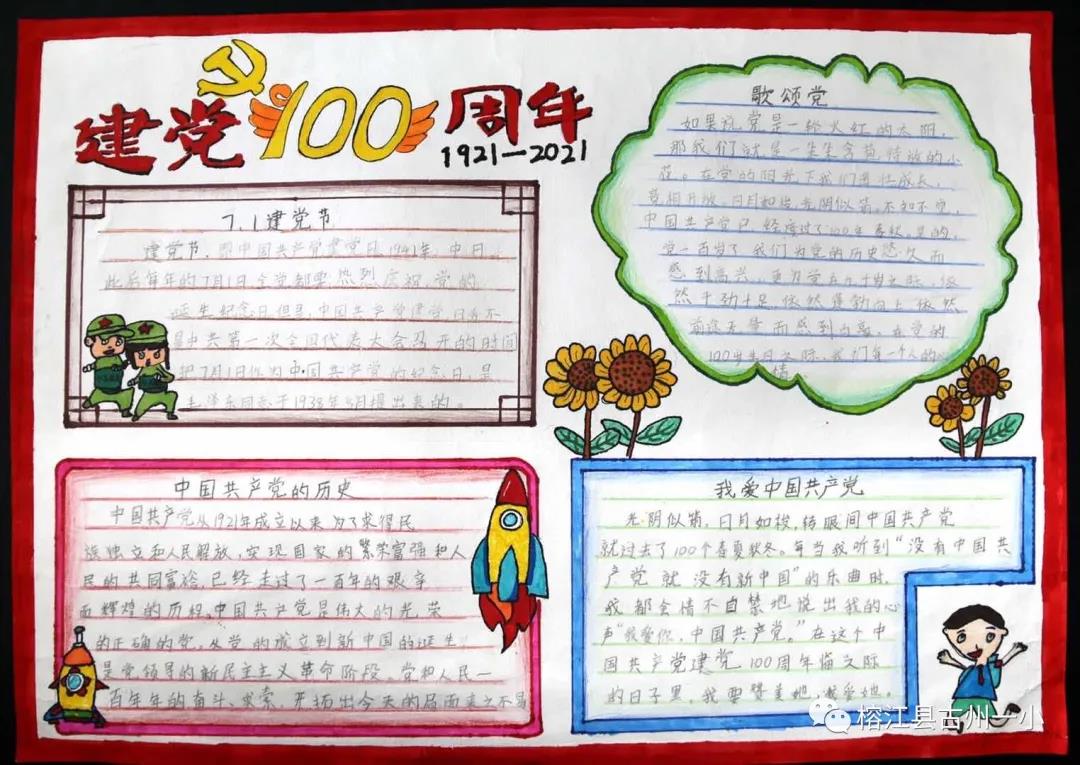 建党100周年
1921—2021
7.1建党节
建党节,即中国共产党建党日1941年,中日
此后每年的7月1日全党都要热烈庆祝,党的
诞生纪念日但是,中国共产党建党日并不
是中共第一次全国代表大会召开的时间
把7月1日作为中国共产党的纪念日,是
毛泽东同志于1938年5月提出来的。
歌颂党
如果说党是一轮火红的太阳,
那我们就是一朵朵含苞待放的小
花。在党的阳光下我们茁壮成长,
竞相开放,日月如梭光阴似箭,不知不觉,
中国共产党已经度过了100年春秋,是的,
党一百岁了我们为党的历史悠久而
感到高兴,更为党在九十岁之际,依
然干劲十足依然蓬勃向上依然
前途无量而感到自豪。在党的
100岁生日之际,我们每一个人的心
情
中国共产党的历史
中国共产党从1921年成立以来为了求得民
族独立和人民解放,实现国家的繁荣富强和人
民的共同富裕,已经走过了一百年的艰辛
而辉煌的历程,中国共产党是伟大的光荣
的正确的党。从党的成立到新中国的诞生,
是党领导的新民主主义革命阶段。党和人民一
百年年的奋斗、求索,开拓出今天的局面来之不易
我爱中国共产党
光阴似箭,日月如梭,转眼间中国共产党
就过去了100个春夏秋冬。每当我听到“没有中国共
产党就没有新中国”的乐曲时,
我都会情不自禁地说出我的心
声“我爱你,中国共产党。”在这个中
国共产党建党100周年临之际
的日子里,我要赞美她,我爱她。
榕江县古州一小